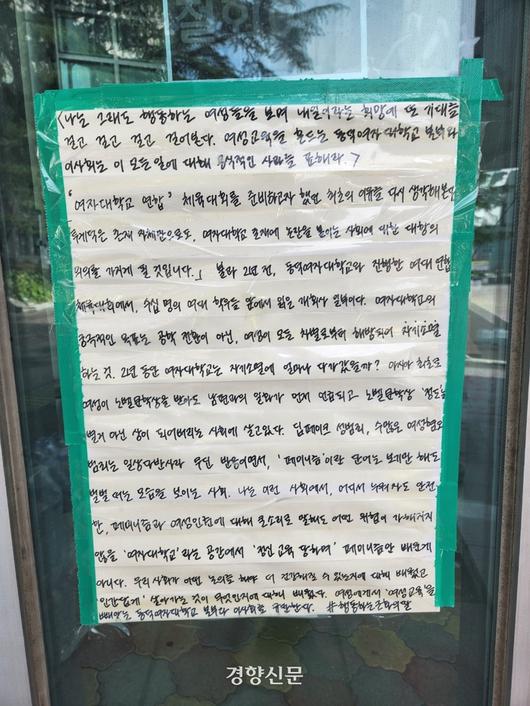 <나는 오래도 행동하는 여성들을 보며 내일이라는 희망에 또 기대를
걸고 걸고 걸고 걸어본다. 여성교육을 흔드는 동덕여자대학교 본부와
이사회는 이 모든 일에 대해 공식적인 사과를 표해라.>
'여자대학교 연합' 체육대회를 준비하고자 했던 최초의 이유를 다시 생각해본다
존재 자체만으로도, 여자대학교 존재에 논란을 붙이는 사회에 대한 대항의
의의를 가지게 될 것입니다.」 불과 2년 전, 동덕여자대학교와 진행한 여대 연합
체육대회에서, 수십 명의 여대 학우들 앞에서 읽은 개회사 일부이다. 여자대학교의
궁극적인 목표는 공학 전환이 아닌, 여성이 모든 차별로부터 해방되어 자기소멸
하는 것. 2년 동안 여자대학교는 자기소멸에 얼마나 다가갔을까? 아시아 최초로
여성이 노벨문학상을 받아도 남편과의 일화가 먼저 언급되고 노벨문학상 '정도'는
별거 아닌 상이 되어버리는 사회에 살고있다. 딥페이크 성범죄, 수많은 여성혐오
범죄는 일상다반사라 무뎌진 반응이면서, '페미니즘'이란 단어는 보기만 해도
벌벌 떠는 모습을 보이는 사회. 나는 이런 사회에서, 어디서 누워자도 안전
한, 페미니즘과 여성인권에 대해 큰소리로 말해도 어떤 위험이 가해지지
않을 '여자대학교'라는 공간에서 '정신 교육 당하며' 페미니즘만 배운게
아니다. 우리 사회가 어떤 논의를 해야 더 건강해질 수 있는지에 대해 배웠고
'인간답게' 살아가는 것이 무엇인지에 대해 배웠다. 여성에게서 '여성교육'을
빼앗는 동덕여자대학교 본부와 이사회를 규탄한다. #행동하는
경향신문